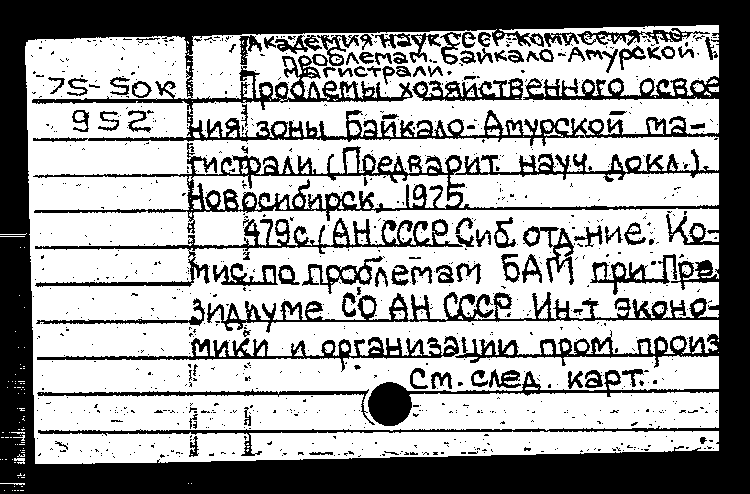 Академия наук СССР. Комиссия по
проблемам Байкало-Амурской
магистрали.
75-50к Проблемы хозяйственного освое
952 ния зоны Байкало-Амурской ма-
гистрали. (Предварит. науч. докл.).
Новосибирск, 1975.
479с. (АН СССР. Сиб. отд-ние. Ко-
мис. по проблемам БАМ при Пре-
зидиуме СО АН СССР. Ин-т эконо-
мики и организации пром. произ
См. след. карт.